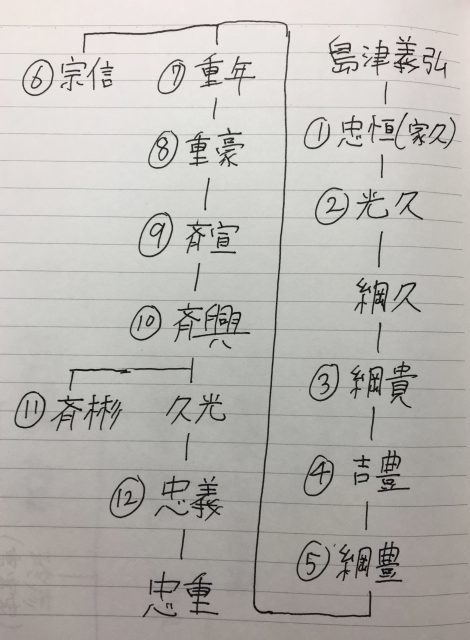 島津義弘
①忠恒(家久)
②光久
綱久
③綱貴
④吉豊
⑤綱豊
⑥宗信
⑦重年
⑧重豪
⑨斉宣
⑩斉興
⑪斉彬
久光
⑫忠義
忠重